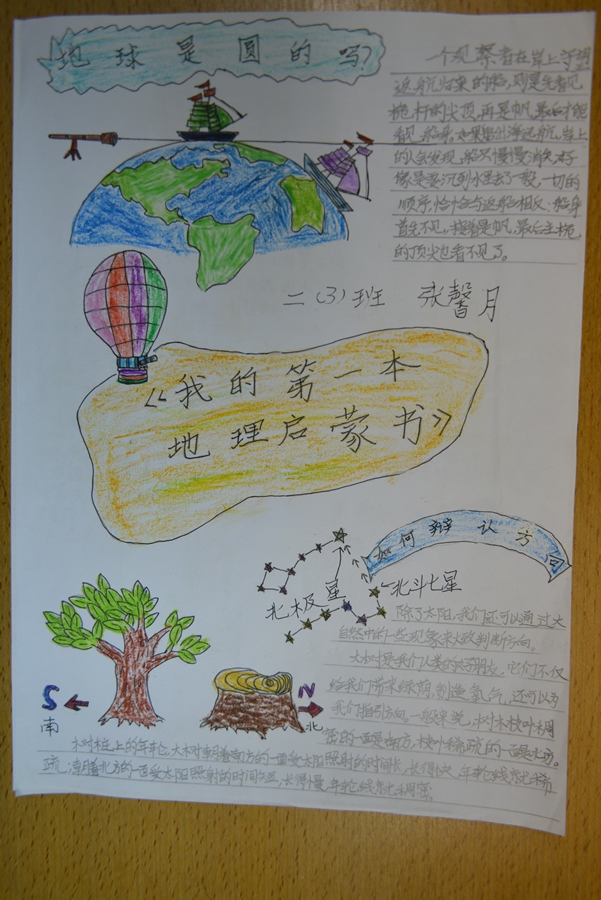 地球是圆的吗?
一个观察者在岸上守望
返航归来的船,则是先看见
桅杆的尖顶,再是帆,最后才能
看见船身。如果船出海远航,岸上
的人会发现,船只慢慢消失,好
像是要沉到水里去了一般,一切的
顺序,恰恰与返船相反。船身
首先不见,接着是帆,最后主桅
的顶尖也看不见了。
二(3)班 张馨月
《我的第一本
地理启蒙书》
如何辩认方向
北极星
北斗七星
除了太阳,我们还可以通过大
自然中的一些现象来大致判断方向。
大树是我们人类的好朋友,它们不仅
给我们带来绿荫,制造氧气,还可以为
我们指引方向。一般来说,树木枝叶稠
密的一面是南方,枝叶稀疏的一面是北方。
S
南
N
北
木对桩上的年轮,大树朝着南方的一面受太阳照射的时间长,长得快,年轮线就稀
疏;朝着北方的一面受太阳照射的时间短,长得慢,年轮线就稠密。